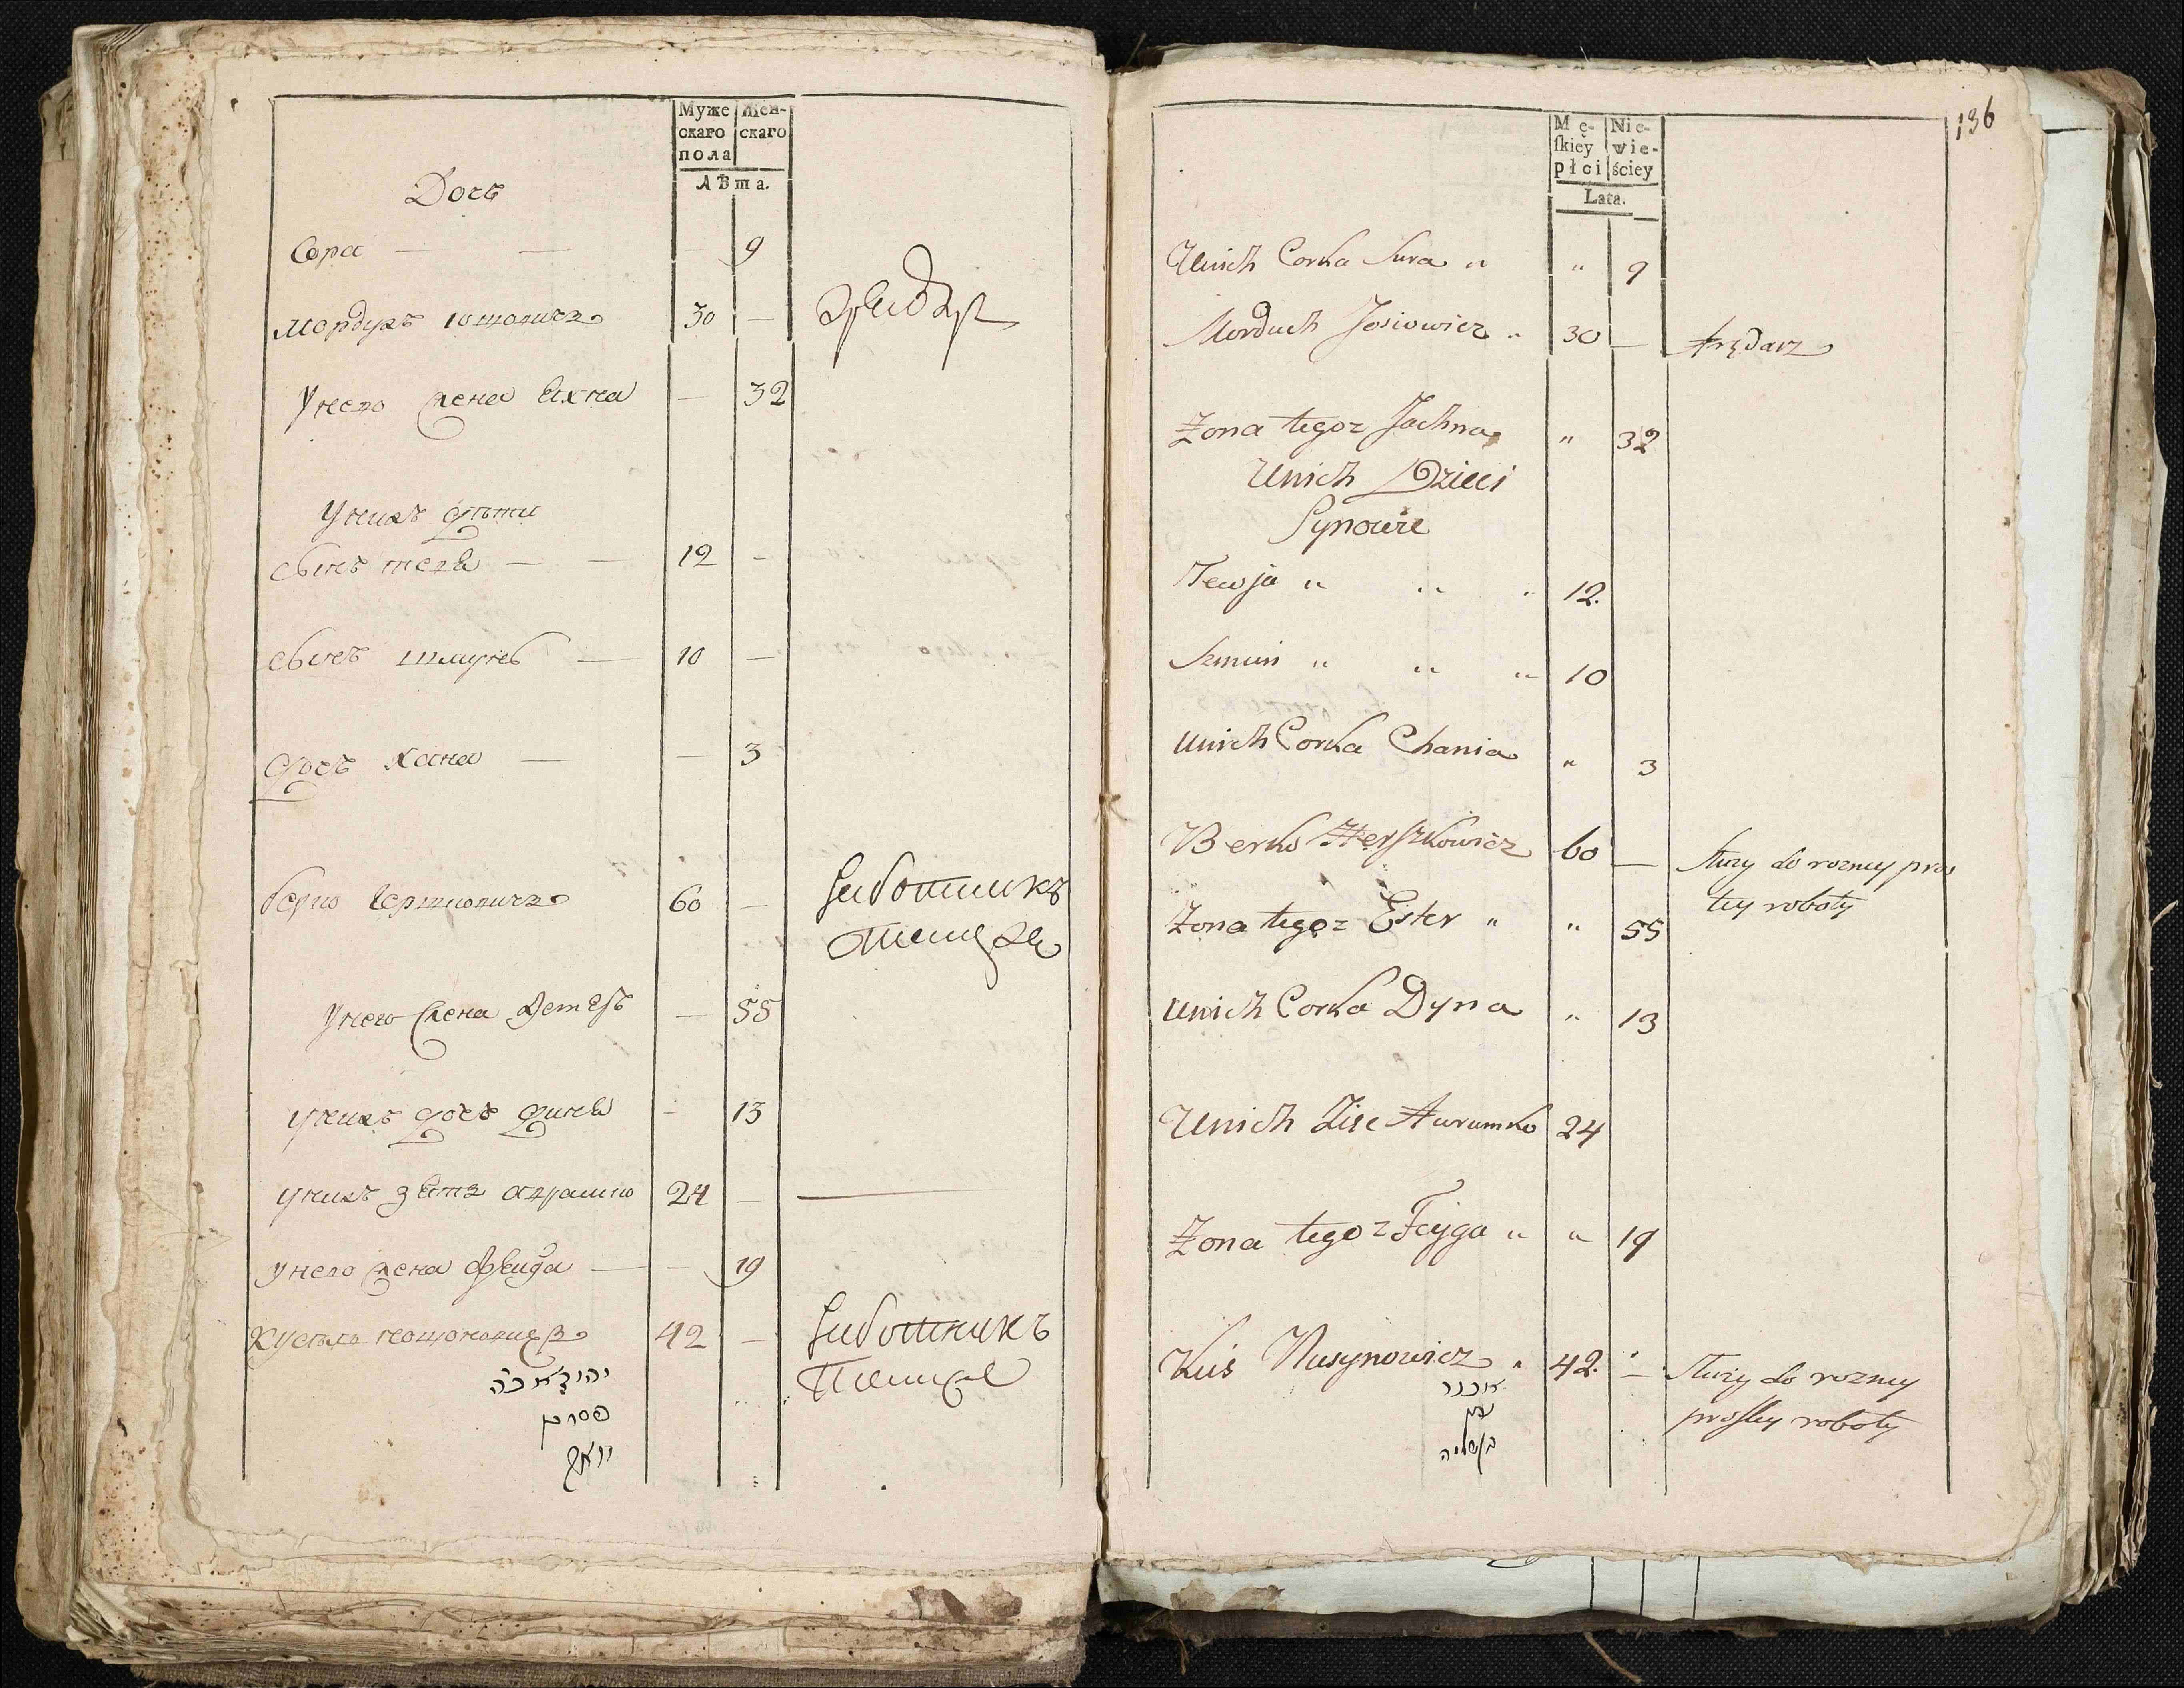 Муже Жен-
скаго скаго
пола
Лѣта.
Дочь
Сора — — — 9
Мордухъ Іошовичъ 30 —
Унего жена Ехна — 32
Унихъ дѣти
Сынъ тевя — — 12 -
Сынъ шмунь — 10 —
дочь хана — — 3
берко гершковичъ 60 —
Унего жена Эстеръ — 55
Унихъ дочь дина - 13
Унихъ зять аврамко 24 —
Унего жена Фейга — — 19
42 — работникъ
136
Mę- Nie-
ſkiey wie-
płci ściey
Lata.
Unich Corka Sura „ „ 9
Morduch Josiowicz „ 30 — Arędarz
Zona tegoz Jachna „ 32
Unich Dzieci
Synowie
Tewja „ „ „ 12.
Szmun „ „ „ 10
Unich Corka Chania „ 3
Berko Herszkowicz 60 — Słuzy do rozney pros
tey roboty
Zona tegoz Ester „ „ 55
Unich Corka Dyna „ 13
Unich Zięc Awrumko 24
Zona tegoz Feyga „ „ 19
Kuś Nusynowicz „ 42. — Słuzy do rozney
prostey roboty